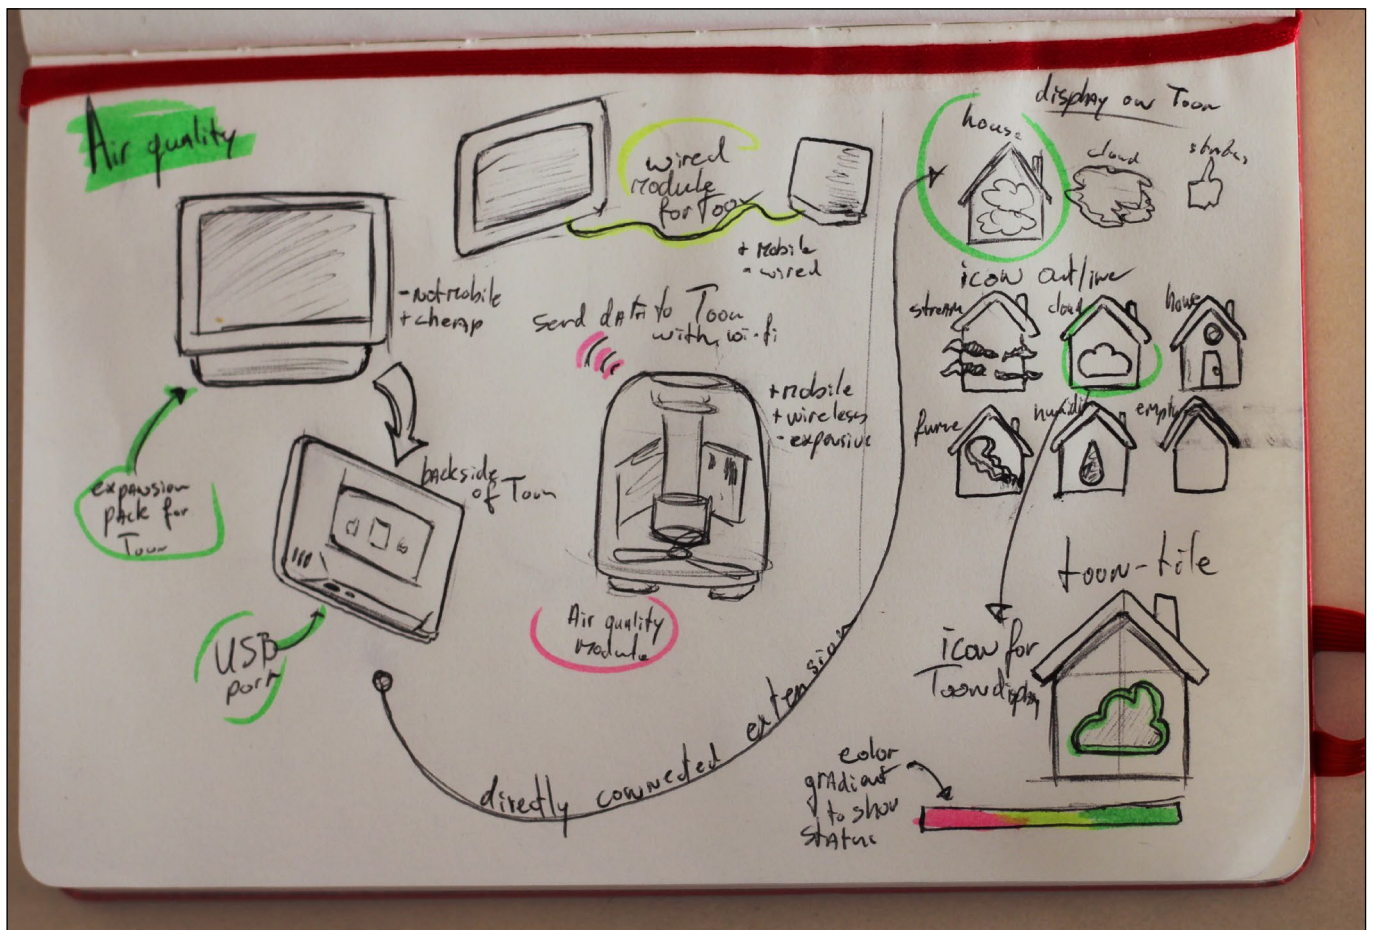 Air quality
- not mobile
+ cheap
expansion
pack for
Toon
backside
of Toon
USB
port
wired
module
for Toon
+ mobile
- wired
send data to Toon
with wi-fi
+ mobile
+ wireless
- expensive
Air quality
module
directly connected extension
display on Toon
house
cloud
status
icon outline
stream
cloud
house
fume
humidity
empty
icon for
Toon display
toon-tile
color
gradient
to show
status